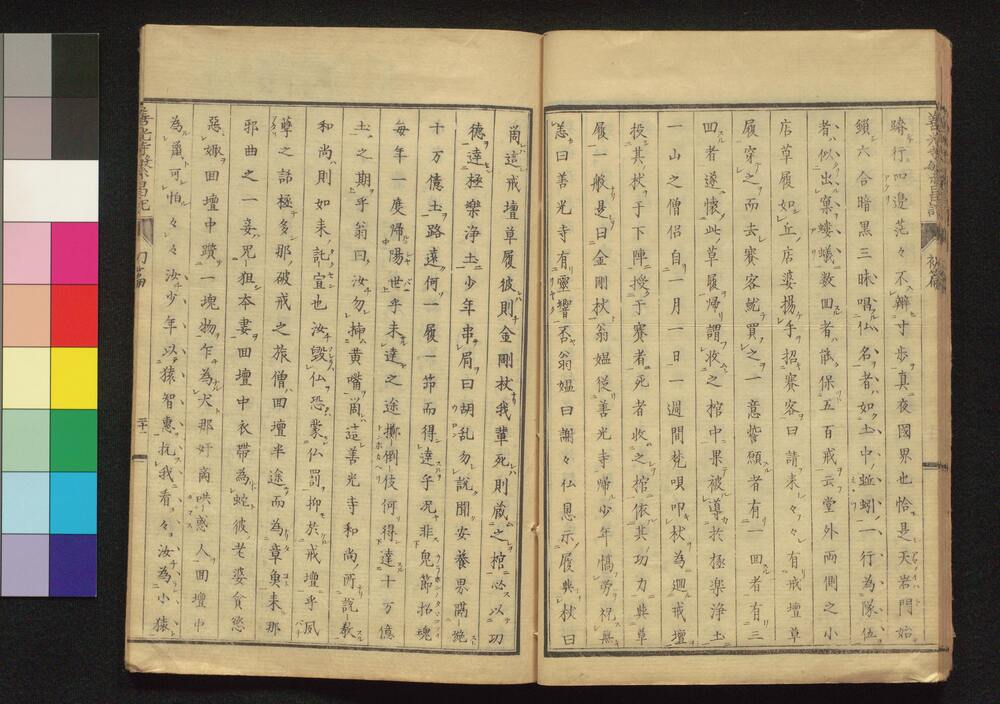 跡行四邊茫々不辨寸歩真夜國界也恰是天岩門始
鎖六合暗黒三昧唱仏名者如土中蚯蚓一行為隊伍
者似出窠螻蟻数回者能保五百戒云堂外両側之小
店草履如丘店婆揚手招賽客曰請来々々有戒壇草
履穿之而去賽客就買之一意誓願者有一回者有三
四者遂懐此草履帰謂收之棺中果被導於極楽浄土
一山之僧侶自一月一日一週間梵唄叩杖為廻戒壇
投其杖于下陣授于賽者死者收之棺依其功力與草
履一般是曰金剛杖翁媼従善光寺帰少年犒労祝無
恙曰善光寺有靈響否翁媼曰謝々仏恩示履與杖曰
這戒壇草履彼則金剛杖我輩死則蔵之棺必以功
徳達極樂浄土少年串眉曰胡乱勿説聞安養界隔絶
十万億土路遠何一履一節而得達乎况非鬼節招魂
毎年一度帰陽世乎未達之途擲倒伎何得達十万億
土之期乎翁曰汝勿挿黄嘴這善光寺和尚所説教
和尚則如来託宣也汝毀仏恐蒙仏罰抑於戒壇乎夙
孽之話極多那破戒之旅僧回壇半途而為章魚来那
邪曲之一妾兄狙本妻回壇中衣帯為蛇彼老婆貪慾
惡婢回壇中躓一塊物乍為犬那奸商哄惑人回壇中
為可怕々々汝少年以猿智惠抗我看々汝為小猿
善光寺繁昌記 初篇
善光寺繁昌記 初篇 二十一